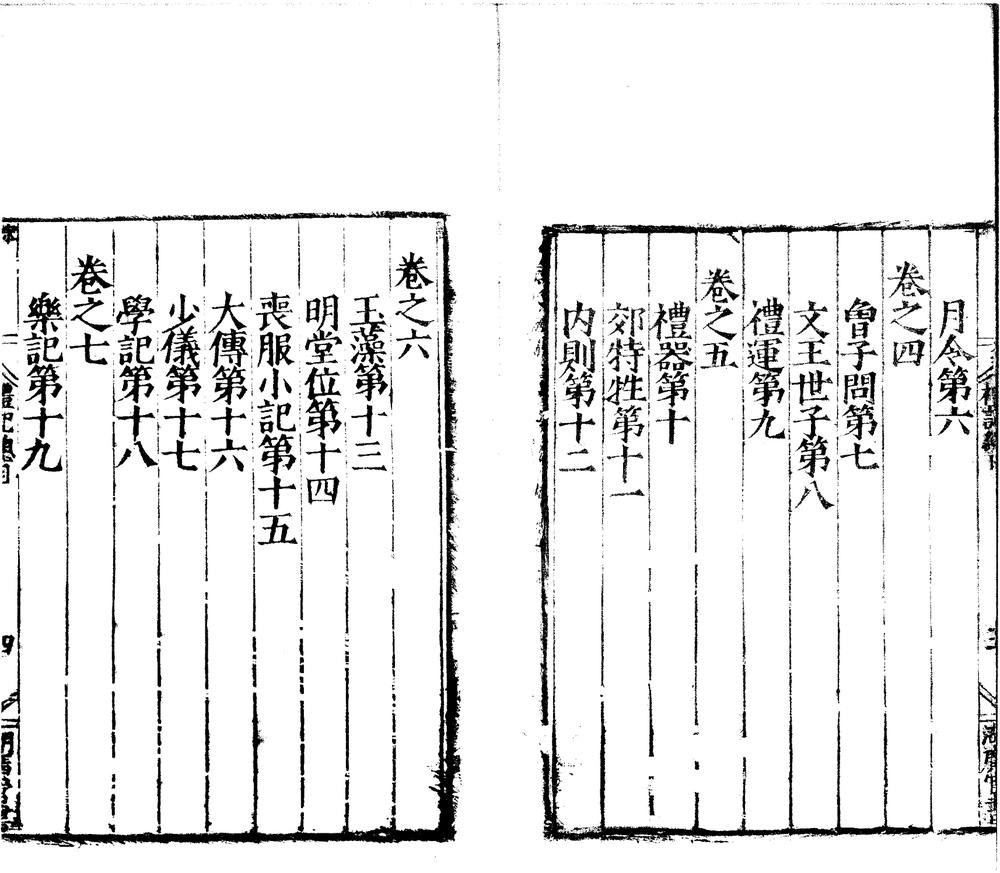 月令第六
卷之四
曾子問第七
文王世子第八
禮運第九
卷之五
禮器第十
郊特牲第十一
内則第十二
卷之六
玉藻第十三
明堂位第十四
喪服小記第十五
大傳第十六
少儀第十七
學記第十八
卷之七
樂記第十九
禮記總目
四